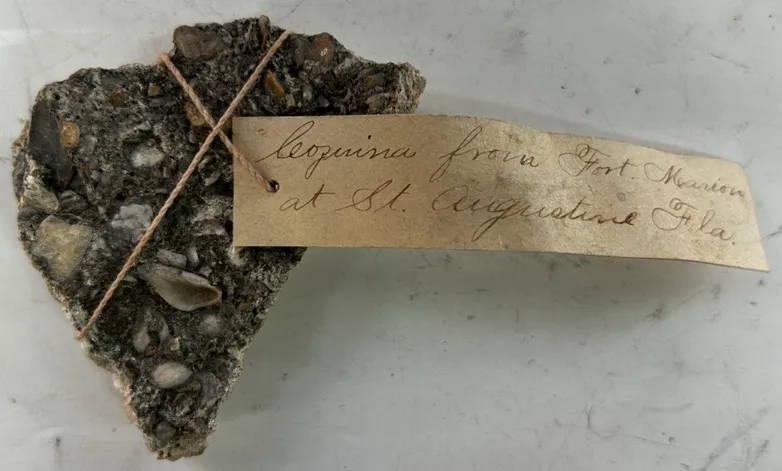 "Cozuina from Fort. Marion
at St. Augustine Fla.